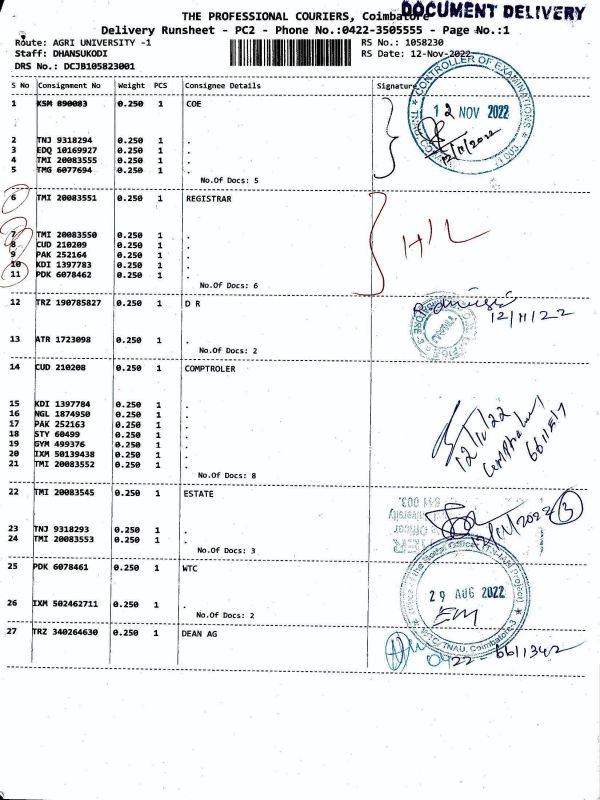 THE PROFESSIONAL COURIERS, Coimbatore
DOCUMENT DELIVERY
Delivery Runsheet - PC2 - Phone No.:0422-3505555 - Page No.:1
Route: AGRI UNIVERSITY -1
RS No.: 1058230
Staff: DHANSUKODI
RS Date: 12-Nov-2022
DRS No.: DCJB105823001
S No Consignment No Weight PCS Consignee Details Signature
1 KSM 890083 0.250 1 COE
2 TNJ 9318294 0.250 1 .
3 EDQ 10169927 0.250 1 .
4 TMI 20083555 0.250 1 .
5 TMG 6077694 0.250 1 .
No.Of Docs: 5
CONTROLLER OF EXAMINATIONS
12 NOV 2022
12/11/2022
6 TMI 20083551 0.250 1 REGISTRAR
7 TMI 20083550 0.250 1 .
8 CUD 210209 0.250 1 .
9 PAK 252164 0.250 1 .
10 KDI 1397783 0.250 1 .
11 PDK 6078462 0.250 1 .
No.Of Docs: 6
H/L
12 TRZ 190785827 0.250 1 D R
12/11/22
13 ATR 1723098 0.250 1 .
No.Of Docs: 2
14 CUD 210208 0.250 1 COMPTROLER
15 KDI 1397784 0.250 1 .
16 NGL 1874950 0.250 1 .
17 PAK 252163 0.250 1 .
18 STY 60499 0.250 1 .
19 GYM 499376 0.250 1 .
20 IXM 50139438 0.250 1 .
21 TMI 20083552 0.250 1 .
No.Of Docs: 8
12/11/22
22 TMI 20083545 0.250 1 ESTATE
23 TNJ 9318293 0.250 1 .
24 TMI 20083553 0.250 1 .
No.Of Docs: 3
3
25 PDK 6078461 0.250 1 WTC
26 IXM 502462711 0.250 1 .
No.Of Docs: 2
29 AUG 2022
WTC/TNAU, Coimbatore-3
27 TRZ 340264630 0.250 1 DEAN AG
0422-6611342